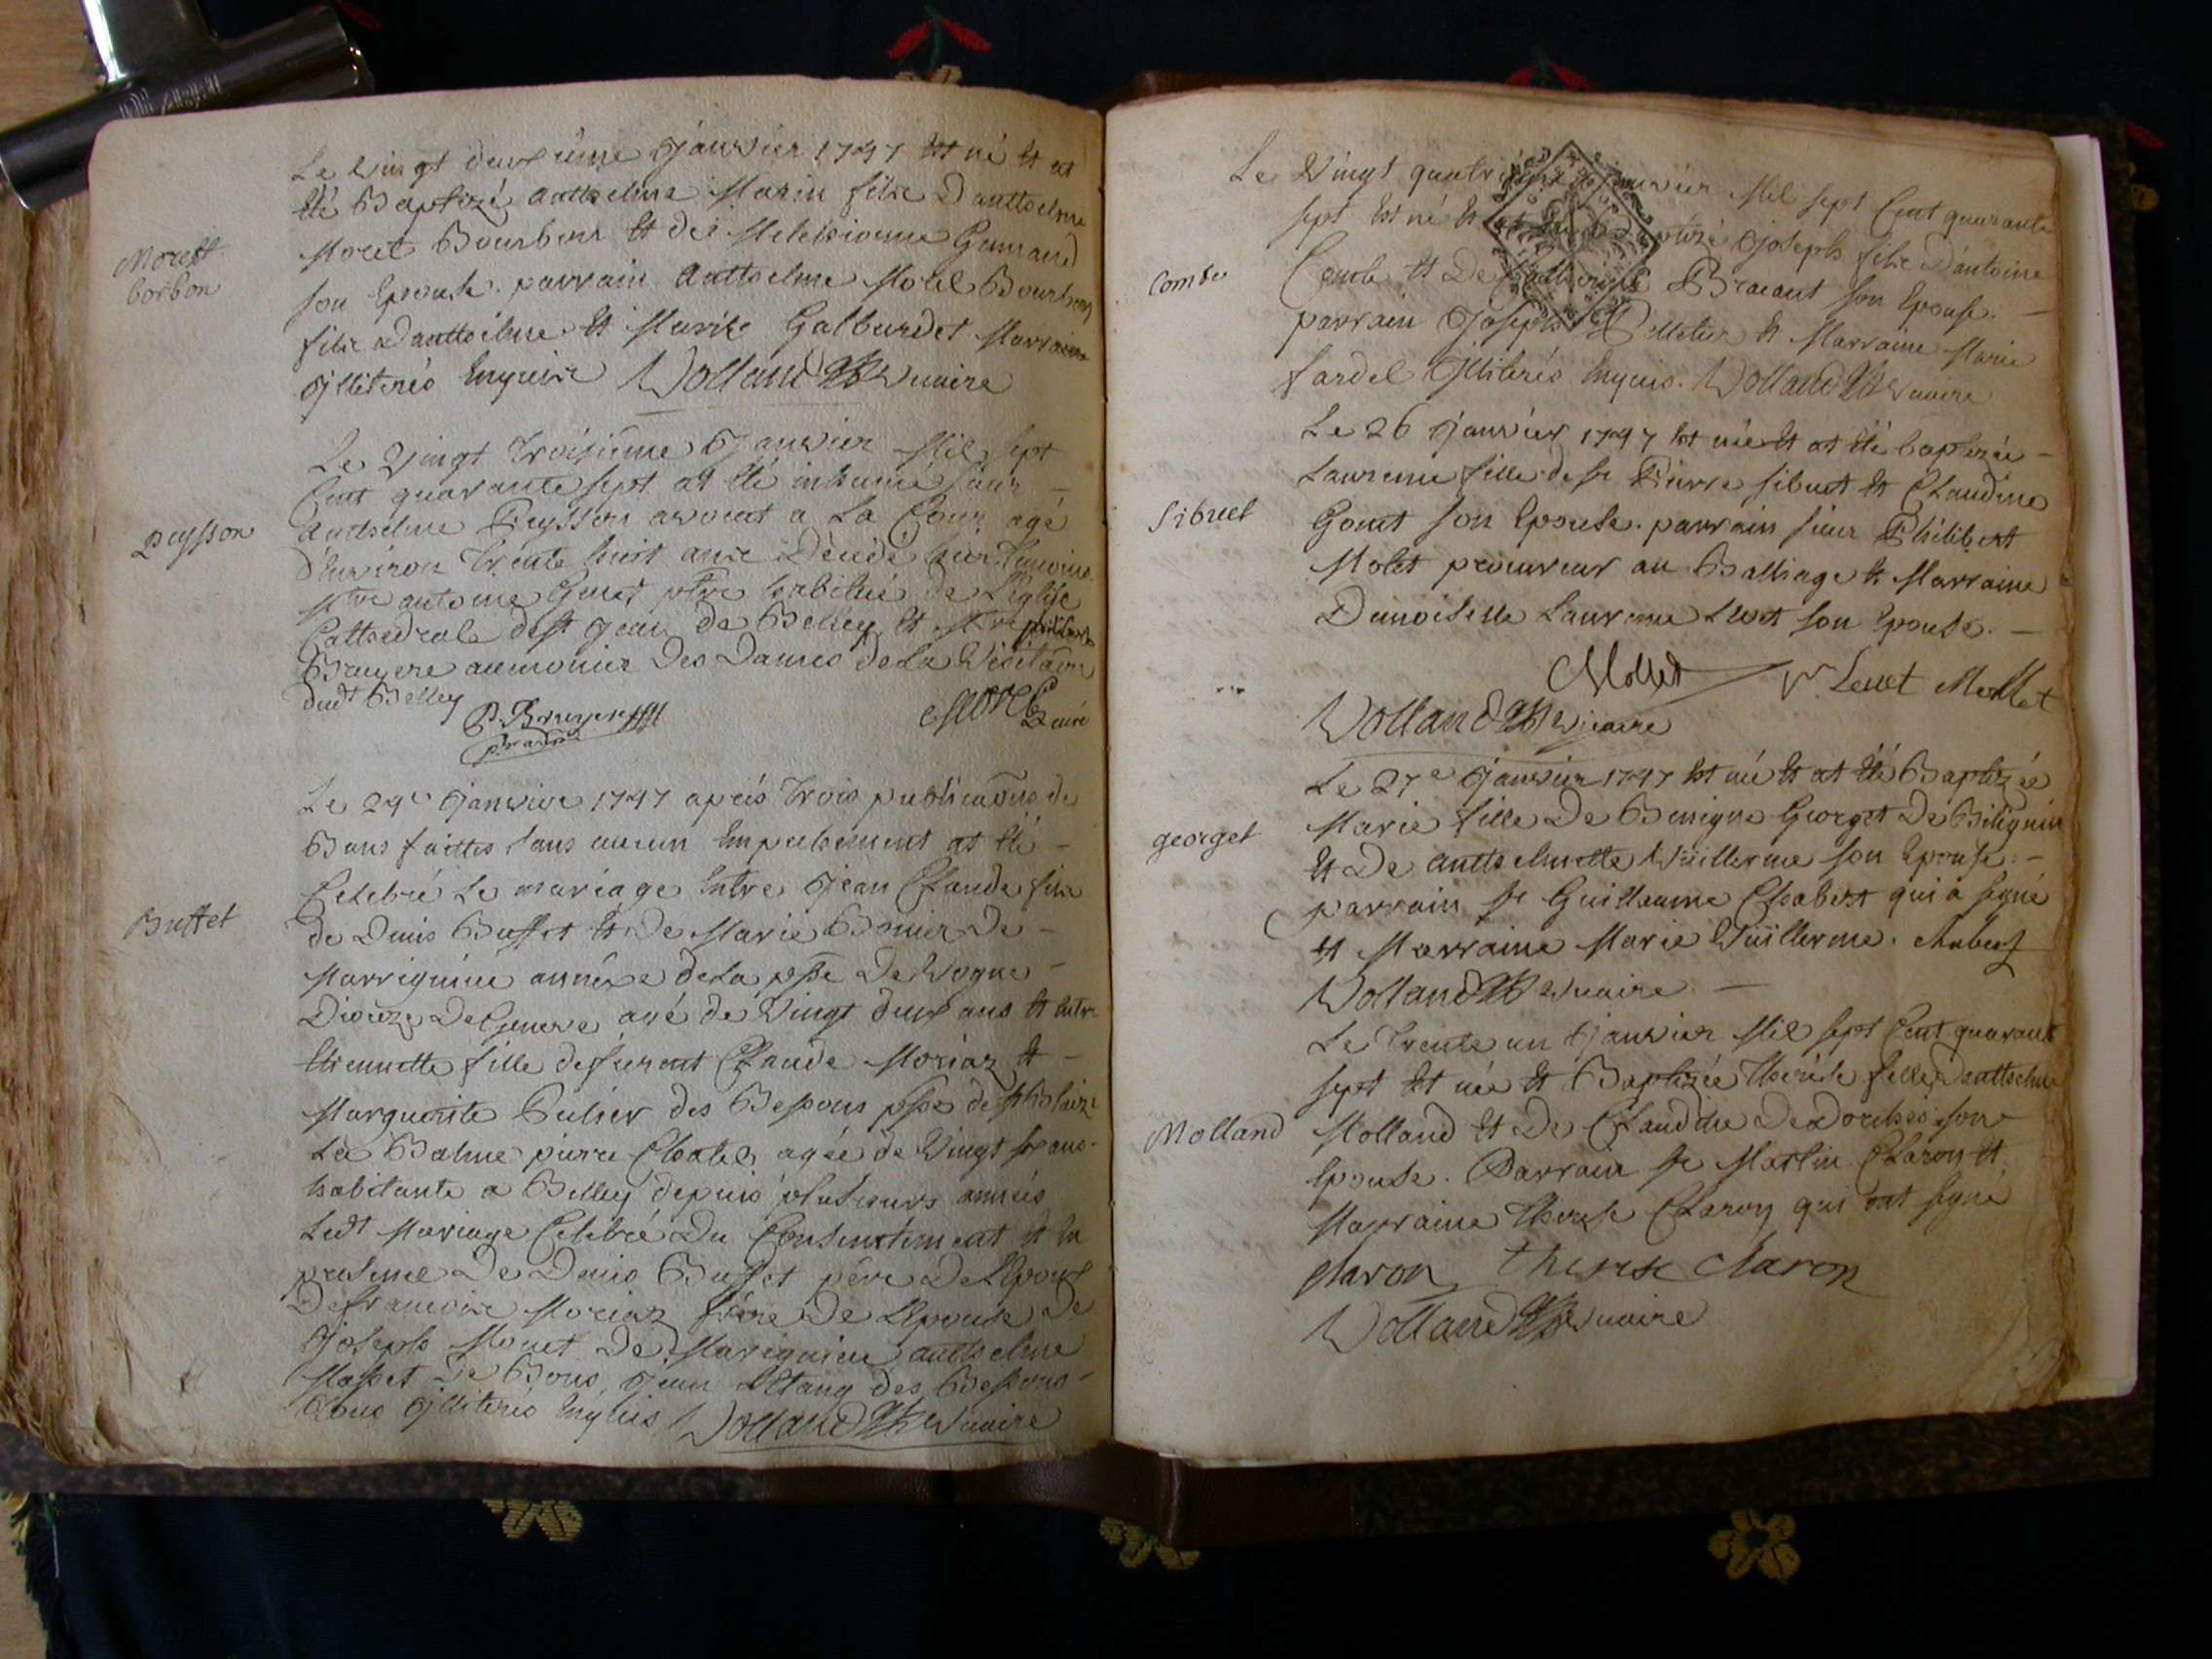 Le vingt deuxième Janvier 1747 est né et at
été Baptizé antthelme Marin filz D'antthelme
Morel Bourbon et de Melchionne Gumand
Morest
borbon
son Epouse. parrain Antthelme Morel Bourbon
filz D'antthelme et Marise Galburdet Marraine
Jllitérés Enquise Volland Vicaire
Le Vingt Troisième Janvier Mil sept
Cent quarante sept at été inhumé sieur
peysson
Antthelme Peysson avocat a La Cour agé
D'environ Trente huit anz Décédé hier Temoins
Mtre antoine Genet ptre habitué de L'église
Cathedrale de St Jean de Belley et Mre
Bruyere aumonier Des Dames de La Visitaōn
dudt Belley
P. Bruyere
Morel
Curé
Le 24e Janvier 1747 après Trois publicaōns de
Bans faittes sans aucun Empechement at été
Celebré Le mariage Entre Jean Claude filz
Buffet
de Denis Buffet et De Marie Bonier De
Marrignieu annéxe de La psse De Vogne
Dioceze De Geneve agé de Vingt deux ans et Entre
Etiennette fille de feu Claude Moriaz et
Marguerite Culier des Bessons psse de St Blaize
La Balme pierre Chatel agée de Vingt sx ans
habitante a Belley depuis plusieurs années
Ledt Mariage Celebré Du Consentement et En
presence De Denis Buffet père De L'Epoux
De francoise Moriaz frère De L'Epouse De
Joseph Monet De Marignieu antthelme
Masset De Bons, Jean L'Etang des Bessons
Tous Jllitérés Enquis Volland Vicaire
Le Vingt quatrième Janvier Mil sept Cent quarante
sept Est né et at été Baptizé Joseph filz D'antoine
Combe
Combe et De Bracant son Epouse.
parrain Joseph Pelletier et Marraine Marie
fardel Jllitérés Enquis. Volland Vicaire
Le 26 Janvier 1747 Est née et at été baptizée
Laurence fille de sr Pierre sibuet et Claudine
Sibuet
Gonet son Epouse. parrain sieur Philibert
Molet procureur au Balliage et Marraine
Demoiselle Laurence Levet son Epouse.
Mollet Lr Levet Mollet
Volland Vicaire
Le 27e Janvier 1747 Est née et at été Baptizée
georget
Marie fille De Benigne Georget De Bilignin
et De Antthelmette Vuillerme son Epouse.
parrain sr Guillaume Chabert qui a signé
et Marraine Marie Vuillerme. Chabert
Volland Vicaire
Le Trente un Janvier Mil sept Cent quarant
sept Est née et Baptizée Therése fille D'antthelme
Molland
Molland et De Claudine De Dorches son
Epouse. Parrain sr Martin Charon et
Marraine Therese Charon qui ont signé
charon therese charon
Volland Vicaire